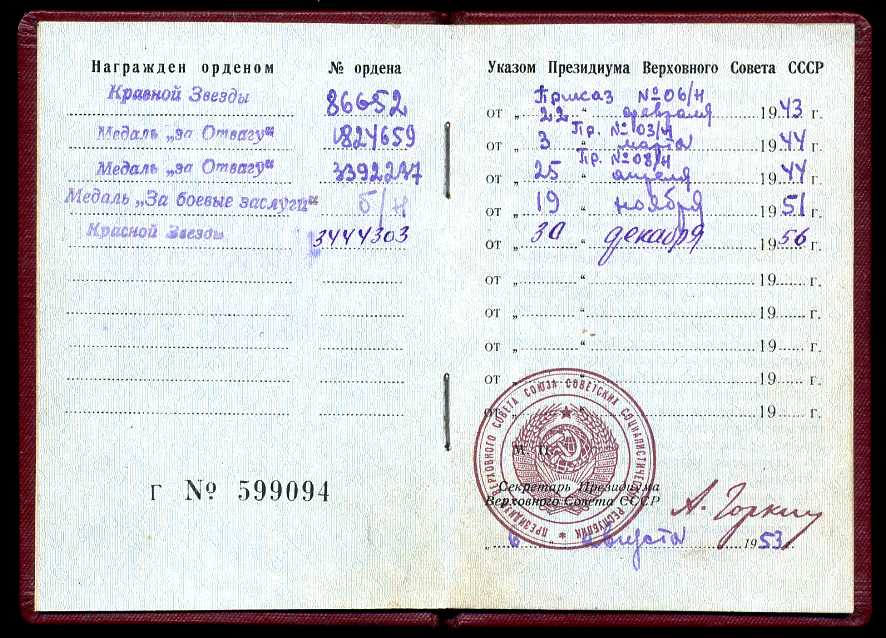 Награжден орденом № ордена
Красной Звезды 86652
Медаль „за Отвагу“ 1824659
Медаль „за Отвагу“ 3392237
Медаль „За боевые заслуги“ б/н
Красной Звезды 3444303
Г № 599094
Указом Президиума Верховного Совета СССР
Приказ № 06/н
от „ 22 “ февраля 1943 г.
Пр. № 03/н
от „ 3 “ марта 1944 г.
Пр. № 08/н
от „ 25 “ апреля 1944 г.
от „ 19 “ ноября 1951 г.
от „ 30 “ декабря 1956 г.
от „ “ 19 г.
от „ “ 19 г.
от „ “ 19 г.
от „ “ 19 г.
от „ “ 19 г.
ПРЕЗИДИУМ ВЕРХОВНОГО СОВЕТА СОЮЗА СОВЕТСКИХ СОЦИАЛИСТИЧЕСКИХ РЕСПУБЛИК
М. П.
Секретарь Президиума
Верховного Совета СССР
А. Горкин
„ 6 “ августа 1953 г.